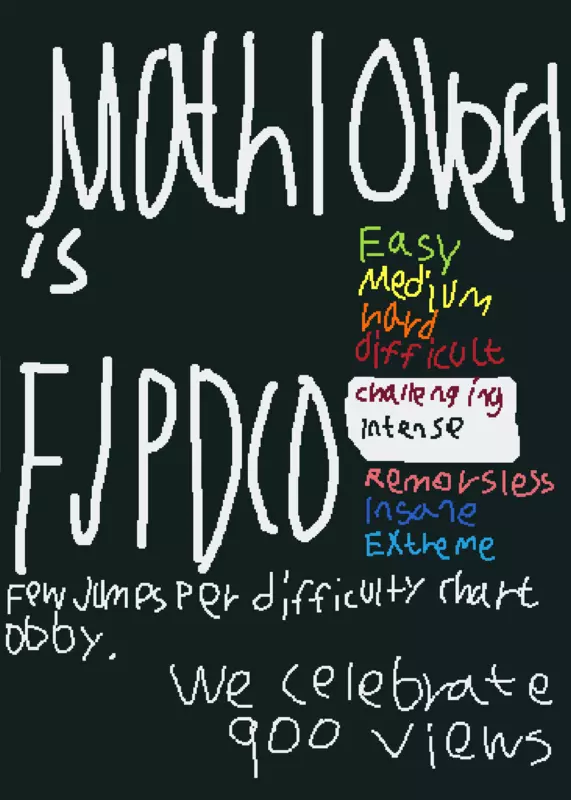 Math lover
is
Easy
Medium
hard
difficult
FJPDCO
challenging
intense
Remorsless
Insane
Extreme
Few Jumps Per difficulty chart
obby.
We celebrate
900 views